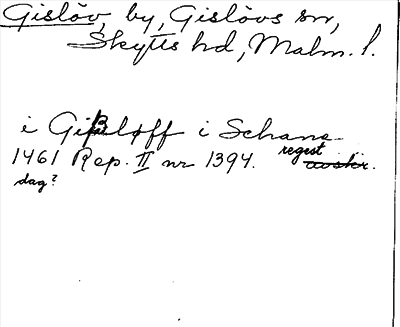 Gislöv, by, Gislövs sn,
Skytts hd, Malm. l.
i Gißløff i Schane
1461 Rep. II nr 1394. regest avskr.
dag?